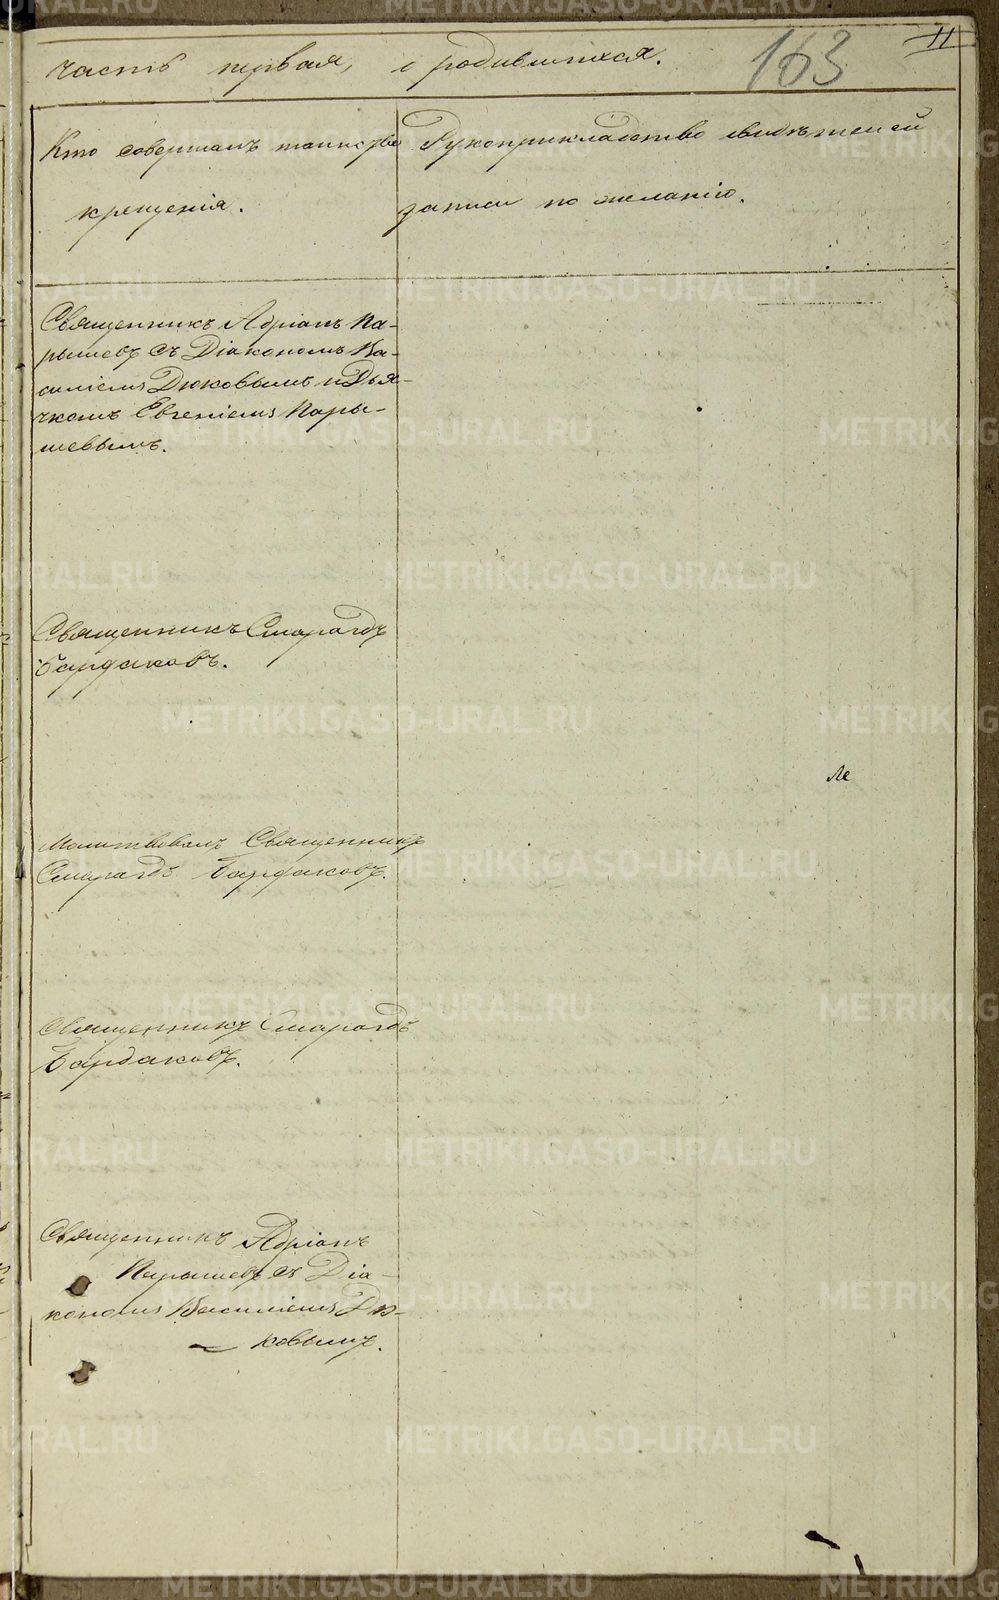 11
163
часть первая, о родившихся.
Кто совершалъ таинство крещенія.
Рукоприкладство свидѣтелей записи по желанію.
Священникъ Адріанъ Па-
рышевъ съ Діакономъ Ва-
силіемъ Дюковымъ и Дья-
чкомъ Евгеніемъ Пары-
шевымъ.
Священникъ Смарагдъ
Бардаковъ.
Молитвовалъ Священникъ
Смарагдъ Бардаковъ.
Священникъ Смарагдъ
Бардаковъ.
Священникъ Адріанъ
Парышевъ съ Діа-
кономъ Василіемъ Дю-
ковымъ.
METRIKI.GASO-URAL.RU